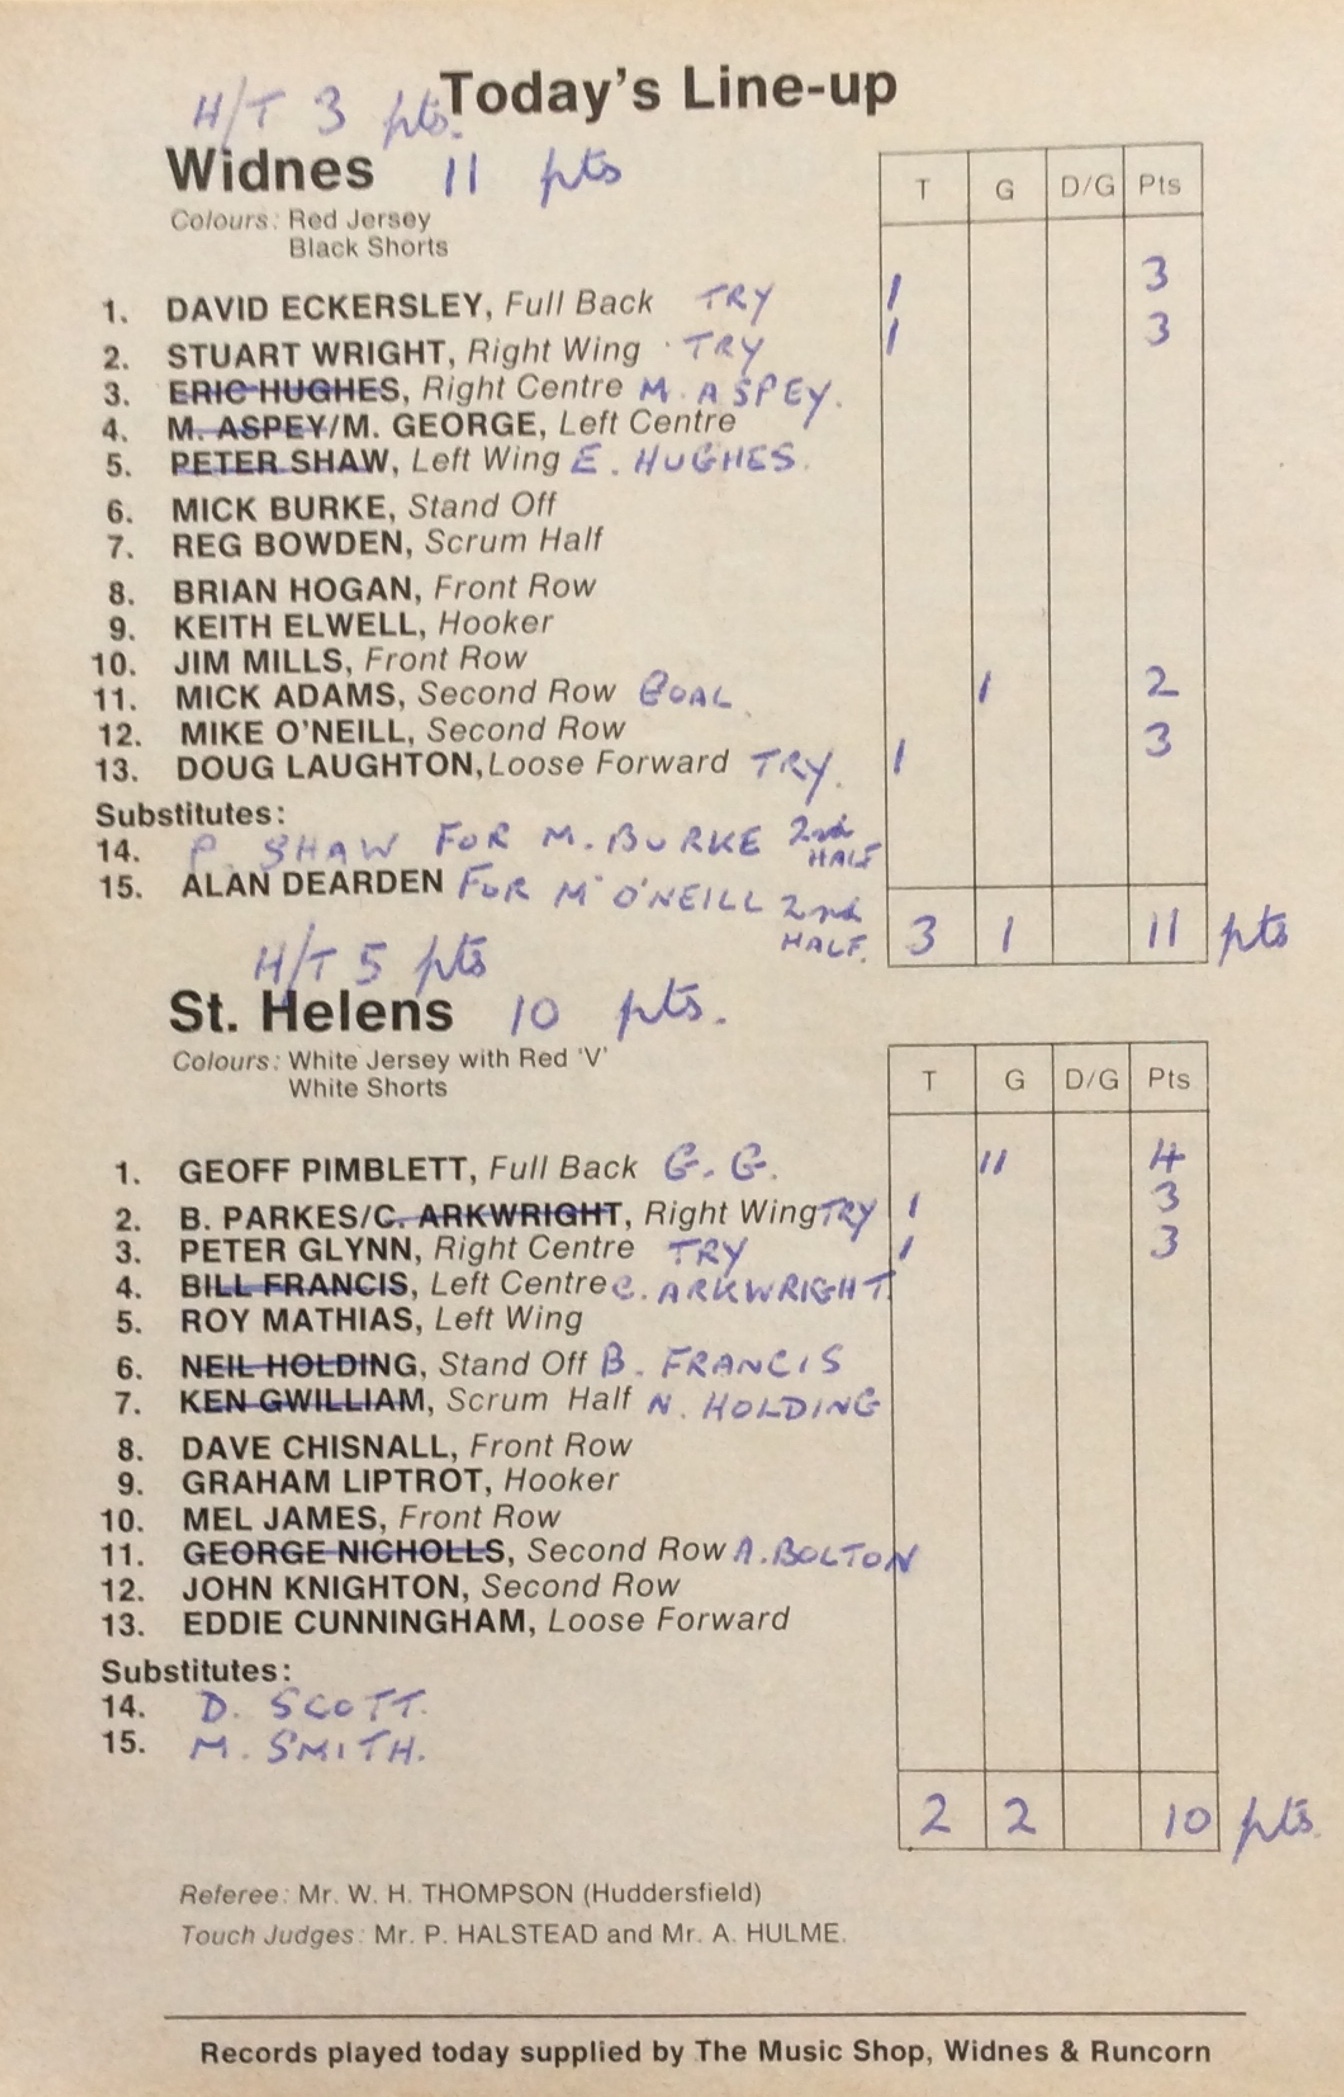 Today's Line-up
H/T 3 pts.
Widnes 11 pts
Colours: Red Jersey
Black Shorts
T G D/G Pts
1. DAVID ECKERSLEY, Full Back TRY 1 3
2. STUART WRIGHT, Right Wing TRY 1 3
3. ERIC HUGHES, Right Centre M. ASPEY.
4. M. ASPEY/M. GEORGE, Left Centre
5. PETER SHAW, Left Wing E. HUGHES.
6. MICK BURKE, Stand Off
7. REG BOWDEN, Scrum Half
8. BRIAN HOGAN, Front Row
9. KEITH ELWELL, Hooker
10. JIM MILLS, Front Row
11. MICK ADAMS, Second Row GOAL 1 2
12. MIKE O'NEILL, Second Row
13. DOUG LAUGHTON, Loose Forward TRY. 1 3
Substitutes:
14. P. SHAW FOR M. BURKE 2nd HALF
15. ALAN DEARDEN FOR M O'NEILL 2nd HALF.
3 1 11 pts
H/T 5 pts
St. Helens 10 pts.
Colours: White Jersey with Red 'V'
White Shorts
T G D/G Pts
1. GEOFF PIMBLETT, Full Back G. G. 11 4
2. B. PARKES/C. ARKWRIGHT, Right Wing TRY 1 3
3. PETER GLYNN, Right Centre TRY 1 3
4. BILL FRANCIS, Left Centre C. ARKWRIGHT.
5. ROY MATHIAS, Left Wing
6. NEIL HOLDING, Stand Off B. FRANCIS
7. KEN GWILLIAM, Scrum Half N. HOLDING
8. DAVE CHISNALL, Front Row
9. GRAHAM LIPTROT, Hooker
10. MEL JAMES, Front Row
11. GEORGE NICHOLLS, Second Row A. BOLTON
12. JOHN KNIGHTON, Second Row
13. EDDIE CUNNINGHAM, Loose Forward
Substitutes:
14. D. SCOTT.
15. M. SMITH.
2 2 10 pts.
Referee: Mr. W. H. THOMPSON (Huddersfield)
Touch Judges: Mr. P. HALSTEAD and Mr. A. HULME.
Records played today supplied by The Music Shop, Widnes & Runcorn